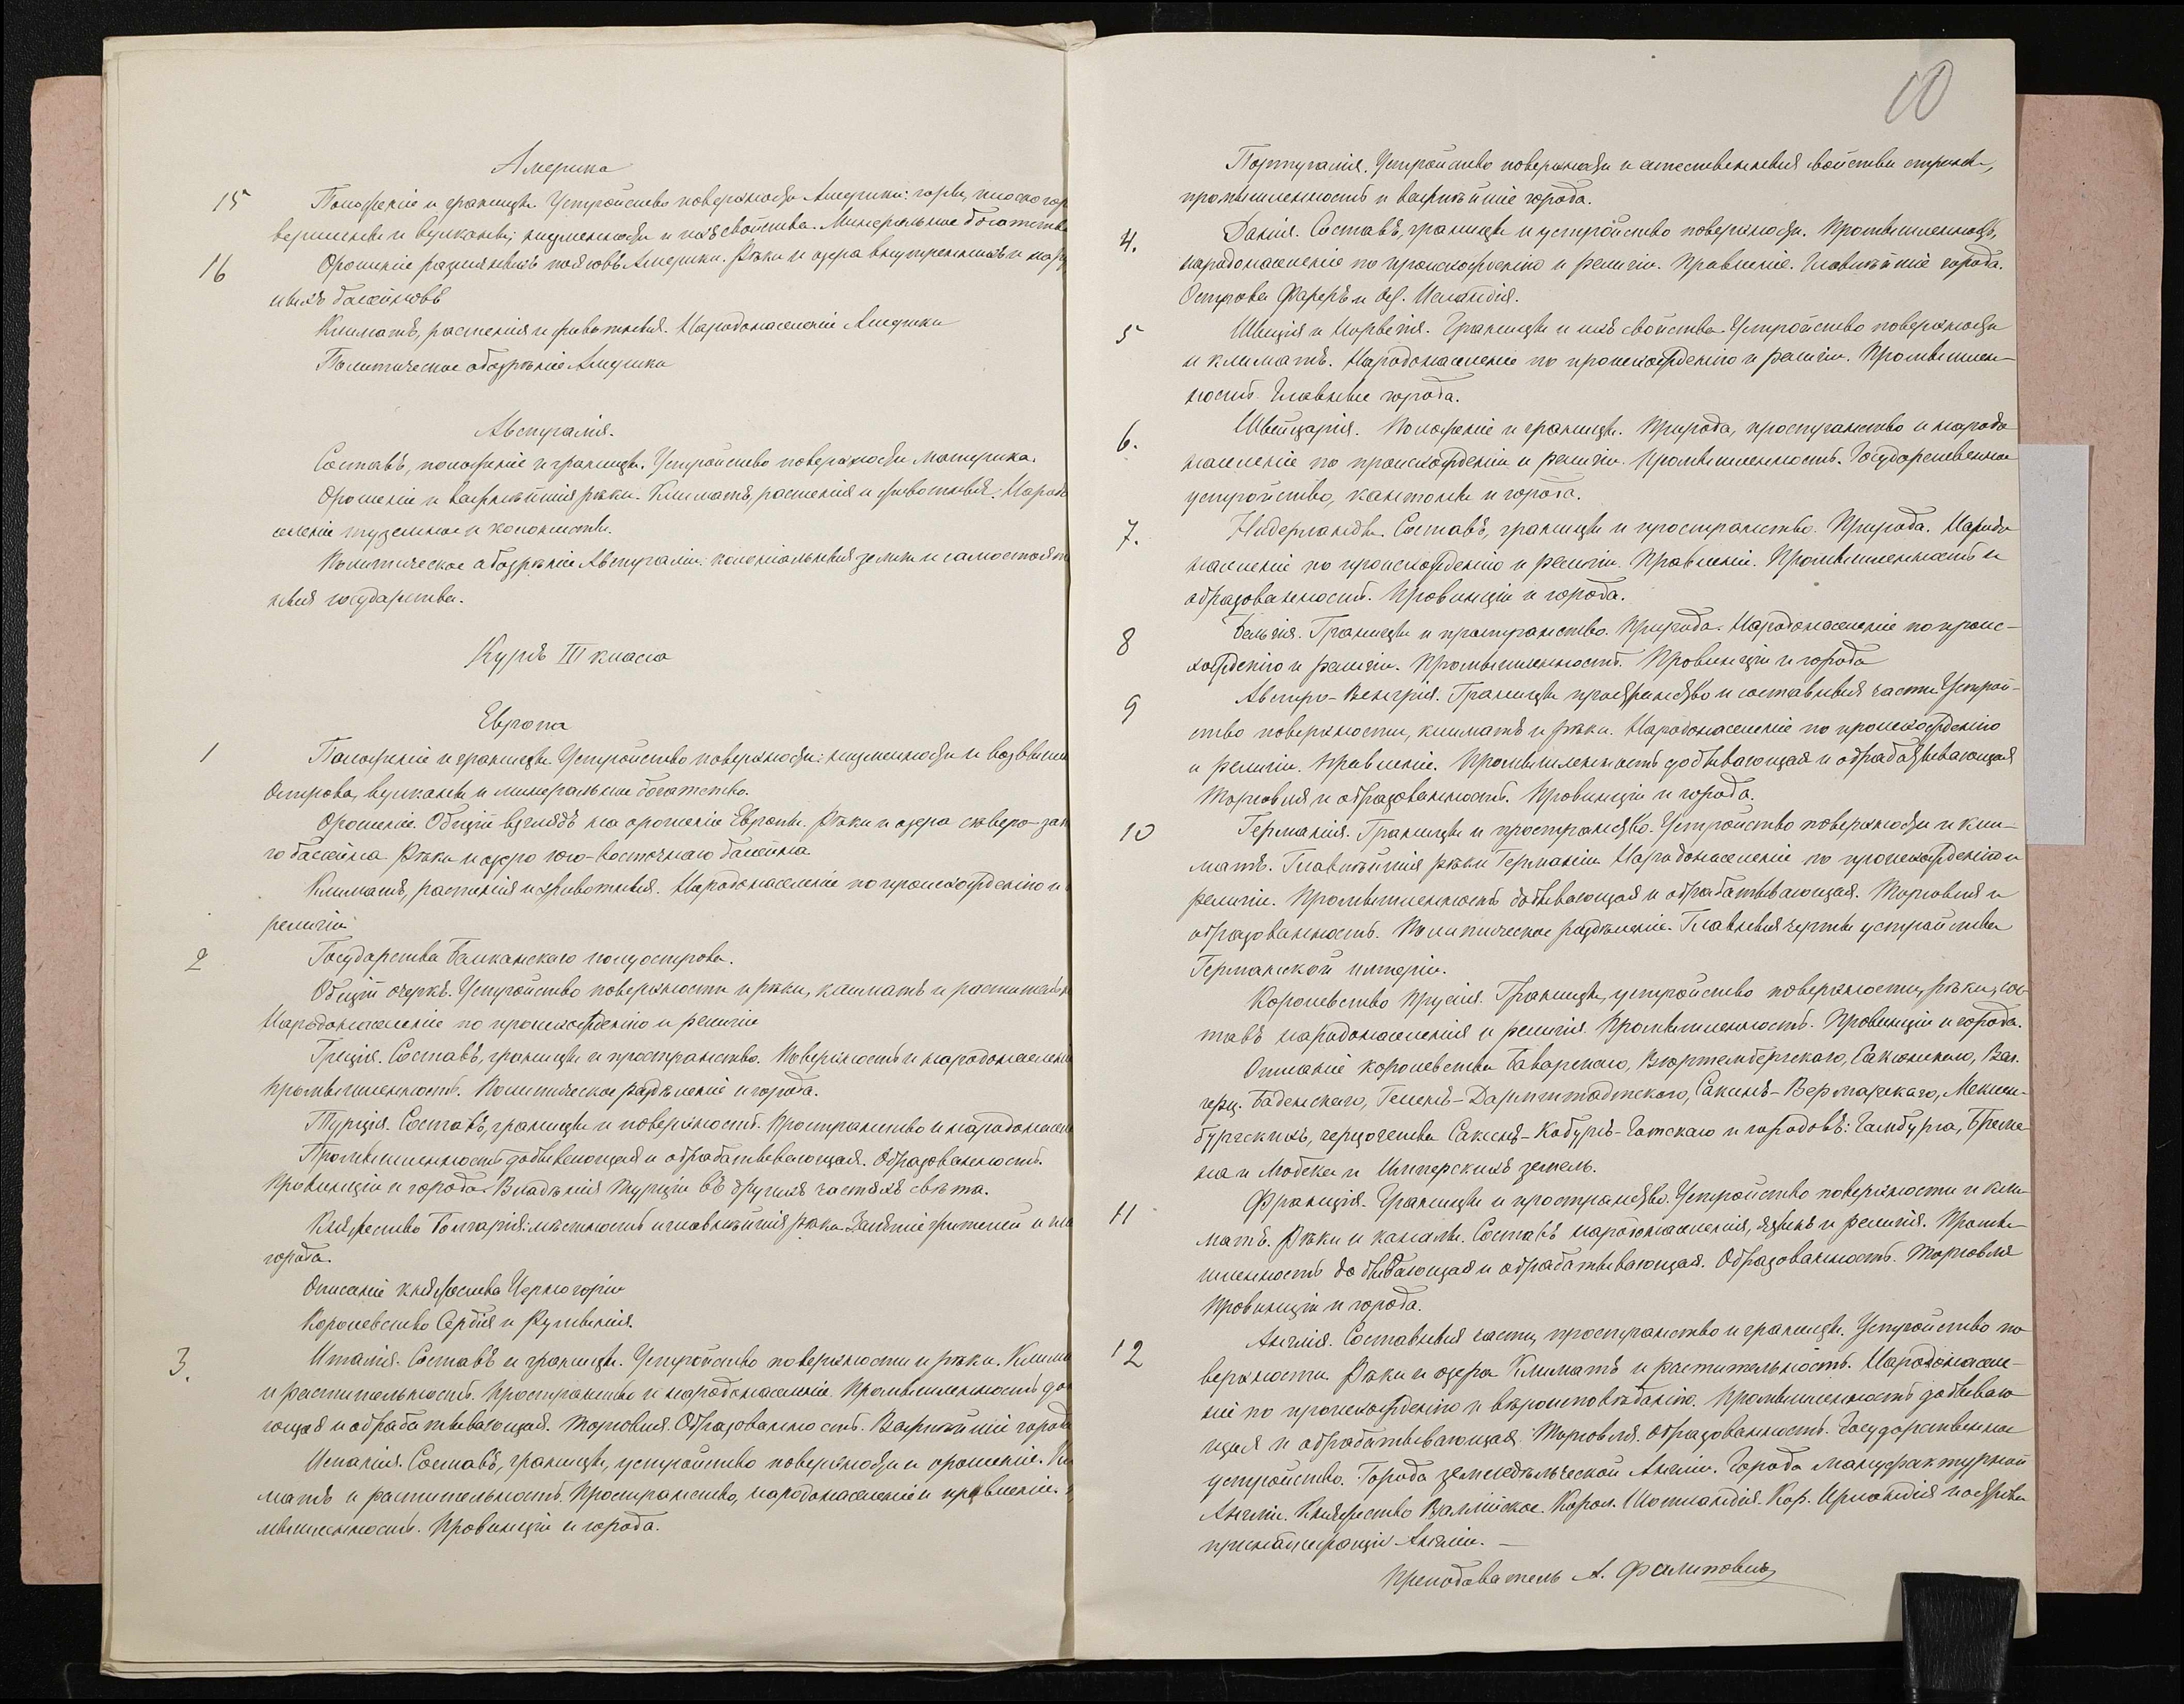 Америка
15 Положеніе и границы. Устройство поверхности Америки: горы, плоского
вершины и вулканы; низменности и ихъ свойства. Минеральное богатство
16 Орошеніе различныхъ поясовъ Америки. Рѣки и озера внутреннихъ и нару
ныхъ бассейновъ
Климатъ, растенія и животныя. Народонаселеніе Америки
Политическое обозрѣніе Америки
Австралія.
Составъ, положеніе и границы. Устройство поверхности материка.
Орошеніе и важнѣйшія рѣки. Климатъ, растенія и животныя. Народо
селеніе туземное и колонисты.
Политическое обозрѣніе Австраліи: колоніальныя земли и самостоят
ныя государства.
Курсъ III класса
Европа
1 Положеніе и границы. Устройство поверхности: низменности и возвыш
Острова, вулканы и минеральное богатство.
Орошеніе. Общій взглядъ на орошеніе Европы. Рѣки и озера сѣверо-зап
го бассейна. Рѣки и озера юго-восточнаго бассейна
Климатъ, растенія и животныя. Народонаселеніе по происхожденію и
религіи
2 Государства Балканскаго полуострова.
Общій очеркъ. Устройство поверхности и рѣки, климатъ и раститель
Народонаселеніе по происхожденію и религіи
Греція. Составъ, границы и пространство. Поверхность и народонаселен
Промышленность. Политическое раздѣленіе и города.
Турція. Составъ, границы и поверхность. Пространство и народонаселен
Промышленность добывающая и обрабатывающая. Образованность.
Провинціи и города. Владѣнія Турціи въ другихъ частяхъ свѣта.
Княжество Болгарія: мѣстность и главнѣйшія рѣки. Занятіе жителей и гл
города.
Описаніе княжества Черногоріи
Королевство Сербія и Румынія.
3. Италія. Составъ и границы. Устройство поверхности и рѣки. Клима
и растительность. Пространство и народонаселеніе. Промышленность до
ющая и обрабатывающая. Торговля. Образованность. Важнѣйшіе города
Испанія. Составъ, границы, устройство поверхности и орошеніе. Кл
матъ и растительность. Пространство, народонаселеніе и правленіе.
мышленность. Провинціи и города.
10
Португалія. Устройство поверхности и естественныя свойства страны,
промышленность и важнѣйшіе города.
4. Данія. Составъ, границы и устройство поверхности. Промышленность,
народонаселеніе по происхожденію и религіи. Правленіе. Главнѣйшіе города.
Острова Фареръ и Исландія.
5 Швеція и Норвегія. Границы и ихъ свойства. Устройство поверхности
и климатъ. Народонаселеніе по происхожденію и религіи. Промышлен-
ность. Главные города.
6. Швейцарія. Положеніе и границы. Природа, пространство и народо
населеніе по происхожденію и религіи. Промышленность. Государственное
устройство, кантоны и города.
7. Нидерланды. Составъ, границы и пространство. Природа. Народо
населеніе по происхожденію и религіи. Правленіе. Промышленность и
образованность. Провинціи и города.
8 Бельгія. Границы и пространство. Природа. Народонаселеніе по проис-
хожденію и религіи. Промышленность. Провинціи и города
9 Австро-Венгрія. Границы пространство и составныя части. Устрой-
ство поверхности, климатъ и рѣки. Народонаселеніе по происхожденію
и религіи. Правленіе. Промышленность добывающая и обрабатывающая
Торговля и образованность. Провинціи и города.
10 Германія. Границы и пространство. Устройство поверхности и кли-
матъ. Главнѣйшія рѣки Германіи. Народонаселеніе по происхожденію и
религіи. Промышленность добывающая и обрабатывающая. Торговля и
образованность. Политическое раздѣленіе. Главныя черты устройства
Германской имперіи.
Королевство Пруссія. Границы, устройство поверхности, рѣки, со
ставъ народонаселенія и религія. Промышленность. Провинціи и города.
Описаніе королевства Баварскаго, Виртембергскаго, Саксонскаго, Вел.
герц. Баденскаго, Гессенъ-Дармштадтскаго, Саксенъ-Веймарскаго, Меклен-
бургскихъ, герцогства Саксенъ-Кобургъ-Готскаго и городовъ: Гамбурга, Бреме
на и Любека и Имперскихъ земель.
11 Франція. Границы и пространство. Устройство поверхности и кли
матъ. Рѣки и каналы. Составъ народонаселенія, языкъ и религія. Промы
шленность добывающая и обрабатывающая. Образованность. Торговля
Провинціи и города.
12 Англія. Составныя части, пространство и границы. Устройство по
верхности. Рѣки и озера. Климатъ и растительность. Народонаселе-
ніе по происхожденію и вѣроисповѣданію. Промышленность добываю
щая и обрабатывающая. Торговля. Образованность. Государственное
устройство. Города земледѣльческой Англіи. Города мануфактурной
Англіи. Княжество Валлійское. Корол. Шотландія. Кор. Ирландія и острова
принадлежащіе Англіи. —
Преподаватель А. Филиповичъ